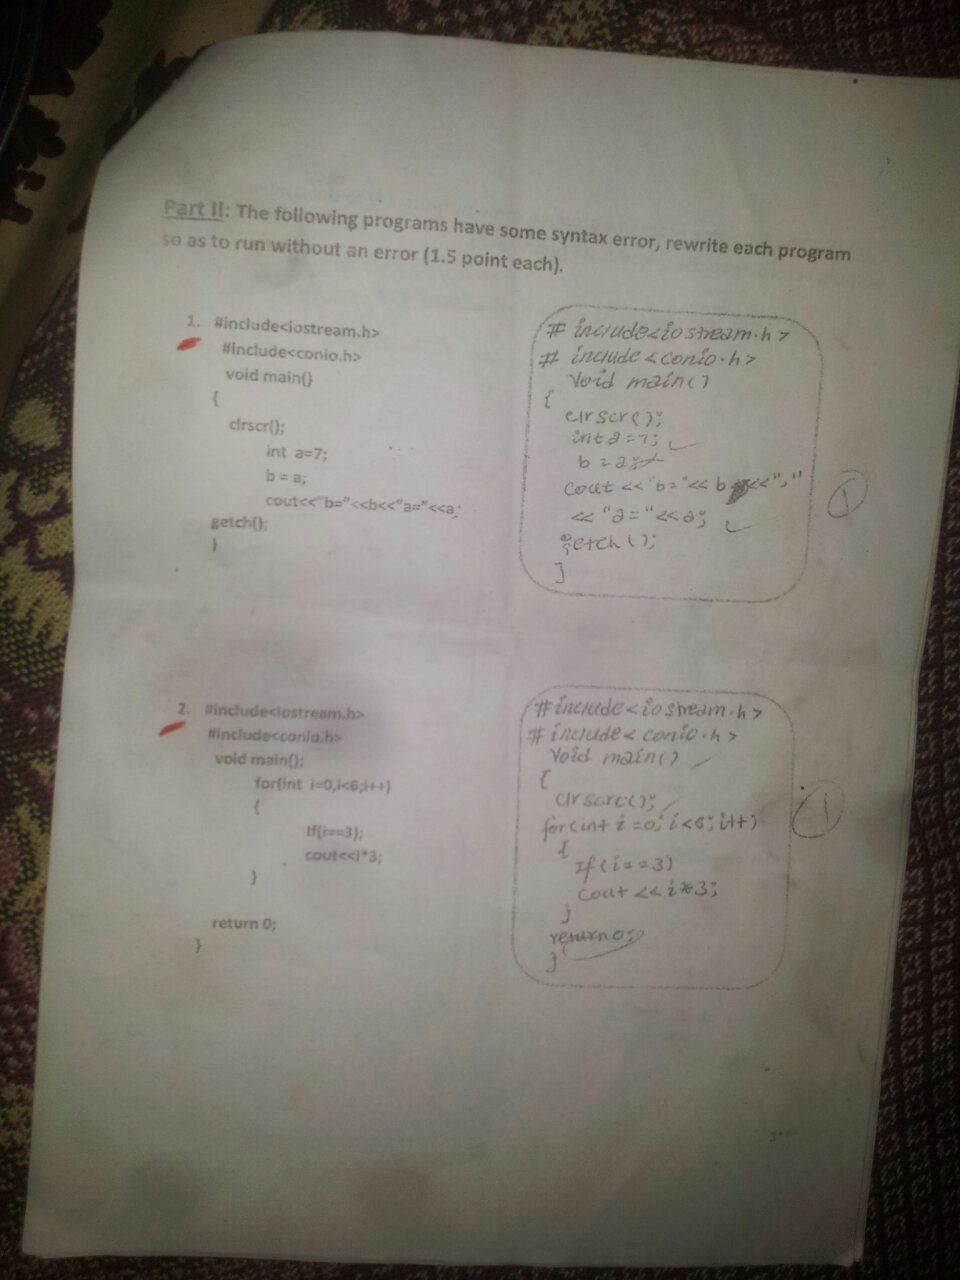 Part II: The following programs have some syntax error, rewrite each program
so as to run without an error (1.5 point each).
1. #include<iostream.h>
#include<conio.h>
void main()
{
clrscr();
int a=7;
b = a;
cout<<"b="<<b<<"a="<<a;
getch();
}
# include<iostream.h>
# include <conio.h>
Void main()
{
clrscr();
int a=7;
b = a;
Cout <<"b="<< b <<","
<< "a="<<a;
getch ();
}
1
2. #include<iostream.h>
#include<conio.h>
void main();
for(int i=0,i<6;i++)
{
If(i==3);
cout<<i*3;
}
return 0;
}
# include<iostream.h>
# include< conio.h>
Void main()
{
clrscrc();
for(int i=0; i<6; i++)
{
If (i==3)
Cout <<i*3;
}
return0;
}
1